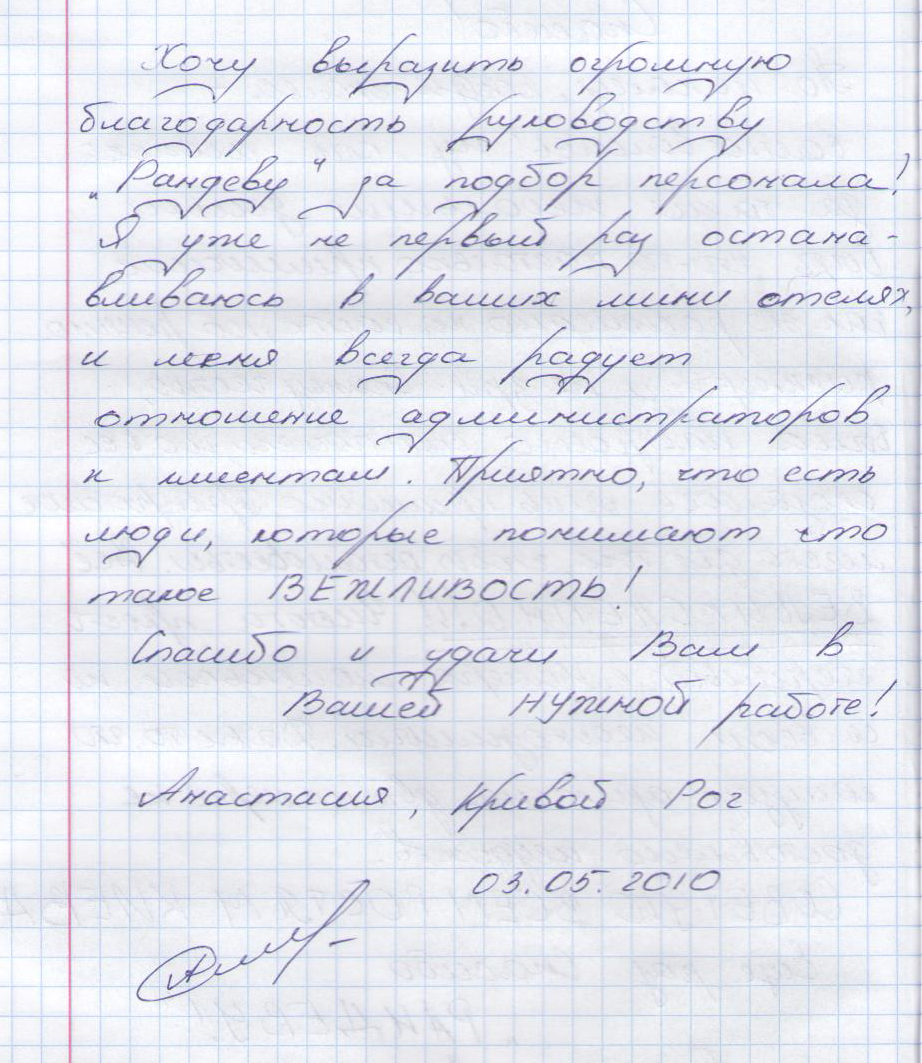 Хочу выразить огромную
благодарность руководству
„Рандеву“ за подбор персонала!
Я уже не первый раз остана-
вливаюсь в ваших мини отелях,
и меня всегда радует
отношение администраторов
к клиентам. Приятно, что есть
люди, которые понимают что
такое ВЕЖЛИВОСТЬ!
Спасибо и удачи Вам в
Вашей НУЖНОЙ работе!
Анастасия, Кривой Рог
03.05.2010